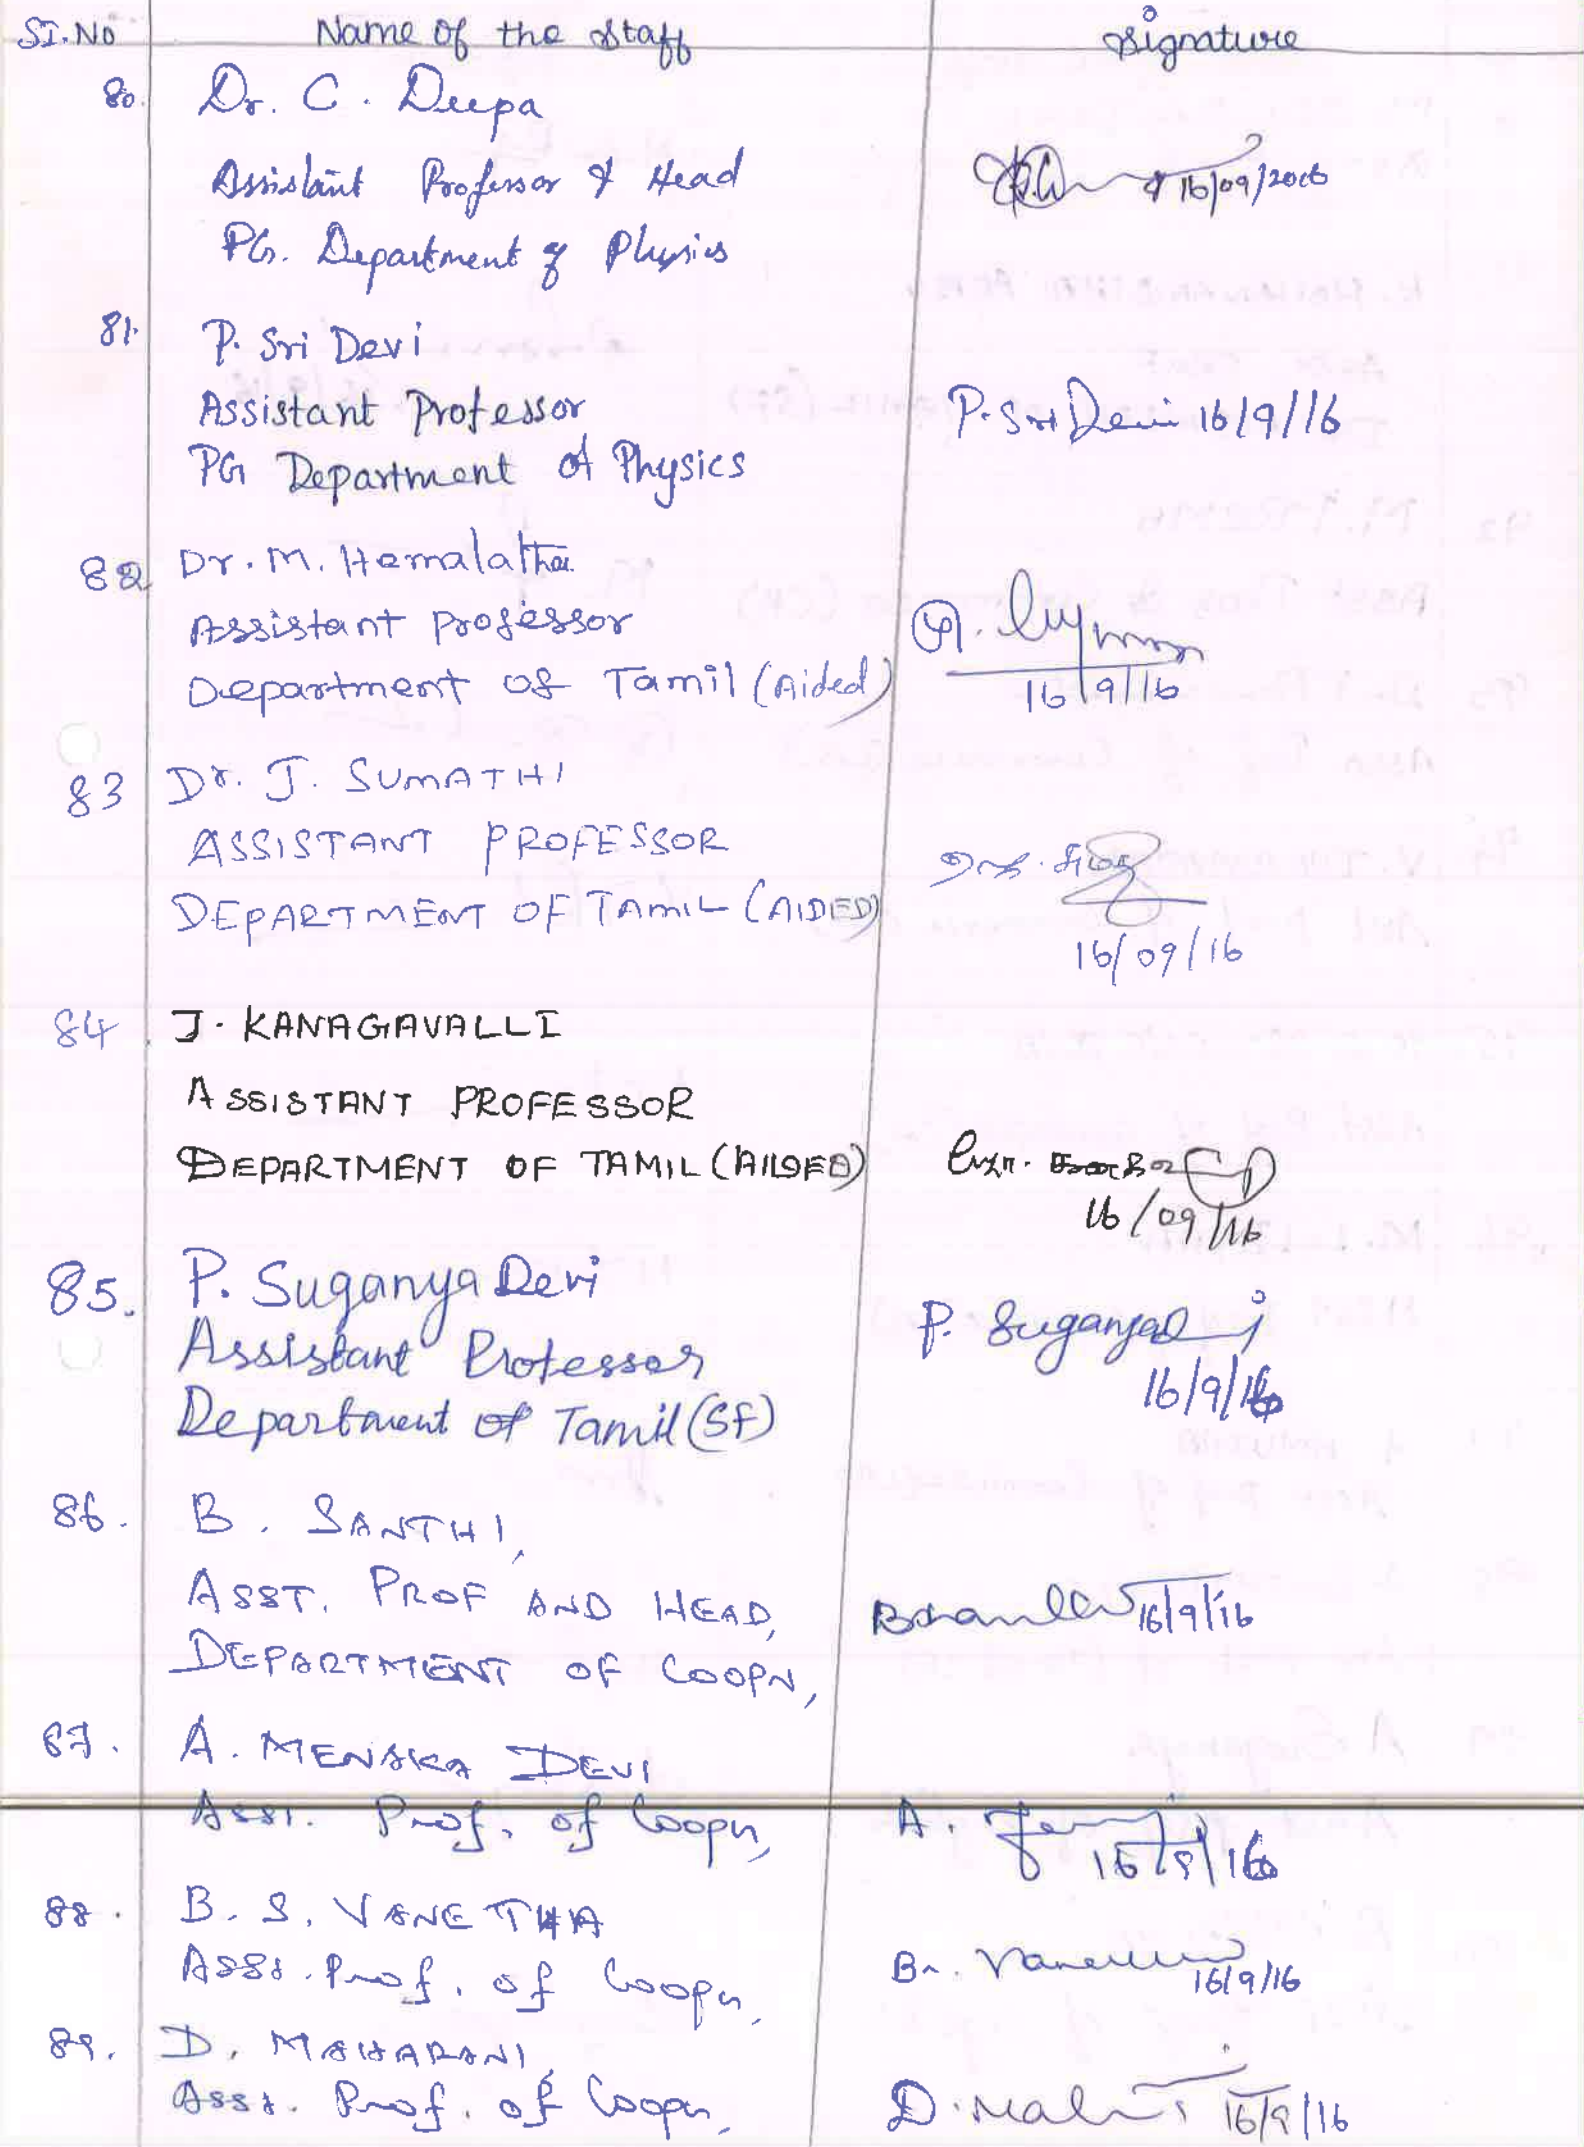 SI.No Name of the Staff Signature
80. Dr. C. Deepa
Assistant Professor & Head 16/09/2016
PG. Department of Physics
81. P. Sri Devi
Assistant Professor P. Sri Devi 16/9/16
PG Department of Physics
82 Dr. M. Hemalatha
Assistant professor
Department of Tamil (Aided) 16/9/16
83 Dr. J. SUMATHI
ASSISTANT PROFESSOR
DEPARTMENT OF TAMIL (AIDED)
16/09/16
84 J. KANAGAVALLI
ASSISTANT PROFESSOR
DEPARTMENT OF TAMIL (AIDED)
16/09/16
85. P. Suganya Devi
Assistant Professor P. Suganya
Department of Tamil (SF) 16/9/16
86. B. SANTHI,
ASST. PROF AND HEAD, 16/9/16
DEPARTMENT OF COOPN,
87. A. MENAKA DEVI
Asst. Prof. of Coopn, A. 16/9/16
88. B. S. VANETHA
Asst. Prof. of Coopn, 16/9/16
89. D. MAHARANI,
Asst. Prof. of Coopn, D. 16/9/16